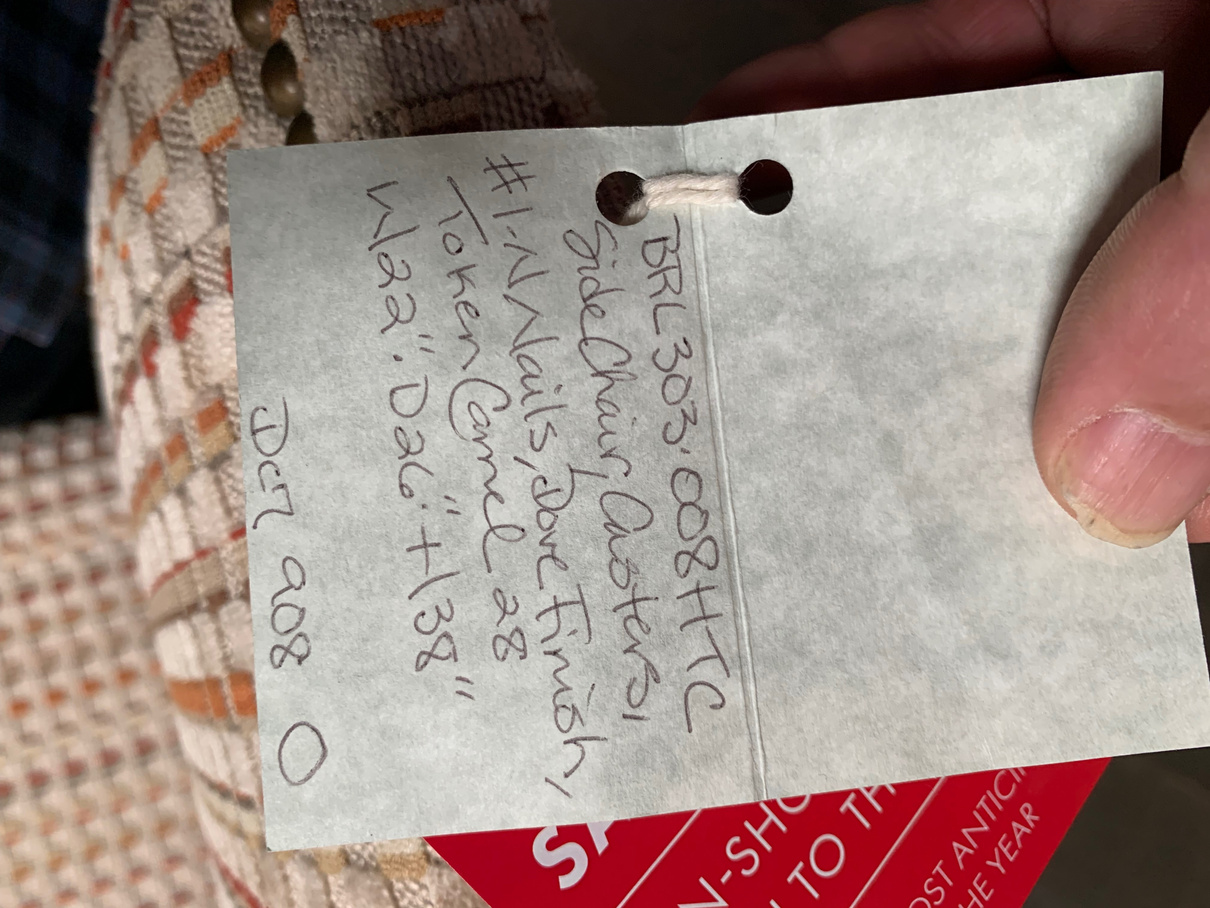 BRL303.008HTC
Side Chair, Casters,
#1-N Nails, Dove Finish,
Token Camel 28
W22". D26". H38"
908 O
N-SHO
TO TH
OST ANTICI
HE YEAR